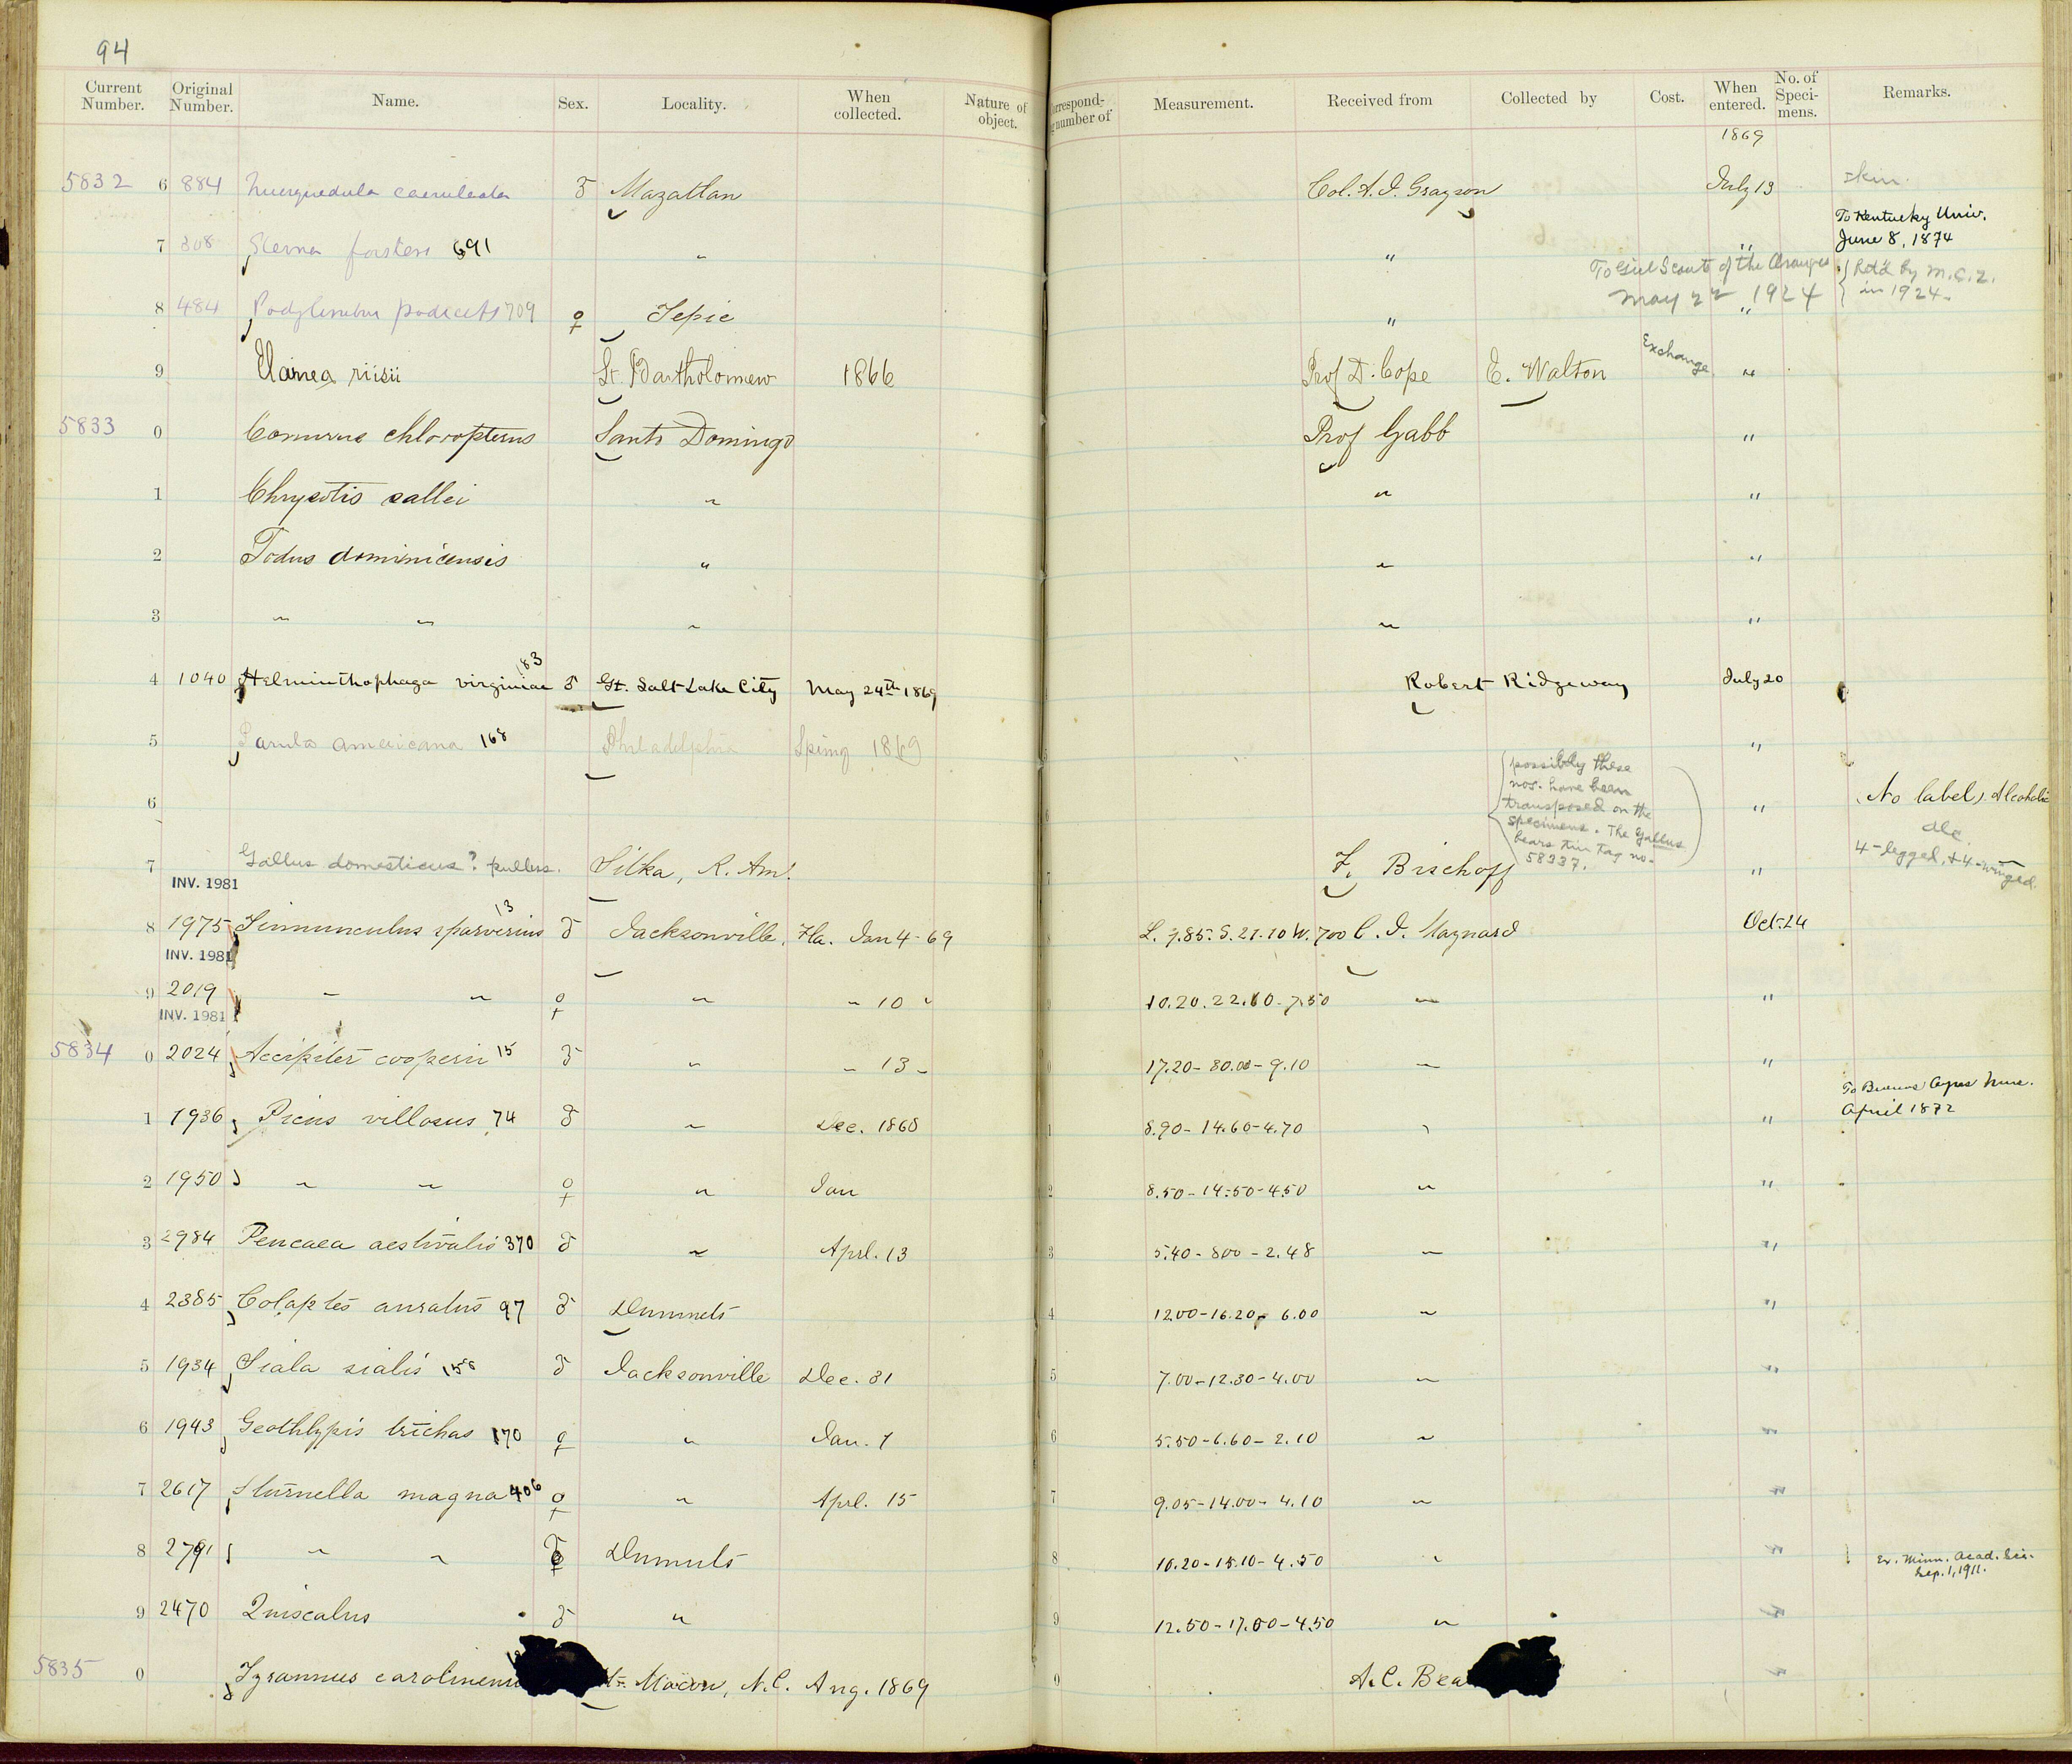 94
Current Number. Original Number. Name. Sex. Locality. When collected. Nature of object. orrespond- number of Measurement. Received from Collected by Cost. When entered. No. of Speci- mens. Remarks.
1869
5832 6 884 Querquedula caerulea ♂ Mazatlan Col. A. J. Grayson July 13 skin.
To Kentucky Univ.
June 8, 1874
7 308 Sterna forsteri 691 " " "
To Girl Scouts of the Oranges
May 22 1924
Ret'd by M.C.Z.
in 1924.
8 484 Podylimbus podiceps 709 ♀ Tepic " "
9 Elainea riisii St. Bartholomew 1866 Prof D. Cope E. Walton Exchange "
5833 0 Conurus chloropterus Santo Domingo Prof Gabb "
1 Chrysotis sallei " " "
2 Todus dominicensis " " "
3 " " " " "
4 1040 Helminthophaga virginiae 183 ♂ Gt. Salt Lake City May 24th 1869 Robert Ridgeway July 20
5 Parula americana 168 Philadelphia Spring 1869 "
6 " (No label) Alcoholic
possibly these
nos. have been
transposed on the
specimens. The Gallus
bears tin tag no.
58337.
7 Gallus domesticus? pullus. Sitka, R. Am. F. Bischoff " alc.
4-legged, & 4-winged.
INV. 1981
8 1975 Tinnunculus sparverius 13 ♂ Jacksonville, Fla. Jan 4-69 L. 9.85. S. 21.10 W. 700 C. J. Maynard Oct. 24
INV. 1981
9 2019 " " ♀ " " 10 " 10.20.22.60-7.50 " "
INV. 1981
5834 0 2024 Accipiter cooperii 15 ♂ " " 13 " 17.20-30.00-9.10 " "
To Buenos Ayres Mus.
April 1872
1 1936 Picus villosus 74 ♂ " Dec. 1868 8.90-14.60-4.70 " "
2 1950 " " ♀ " Jan 8.50-14.50-4.50 " "
3 2984 Peucaea aestivalis 370 ♂ " Apl. 13 5.40-800-2.48 " "
4 2385 Colaptes auratus 97 ♂ Dummets 12.00-16.20-6.00 " "
5 1934 Sialia sialis 158 ♂ Jacksonville Dec. 31 7.00-12.30-4.00 " "
6 1943 Geothlypis trichas 170 ♀ " Jan. 1 5.50-6.60-2.10 " "
7 2617 Sturnella magna 406 ♀ " Apl. 15 9.05-14.00-4.10 " "
8 2791 " " ♀ Dummets 10.20-15.10-4.50 " " Ex. Minn. Acad. Sci.
Sep. 1, 1911.
9 2470 Quiscalus ♂ " 12.50-17.00-4.50 " "
5835 0 Tyrannus carolinens Ft. Macon, N.C. Aug. 1869 A.C. Bea "